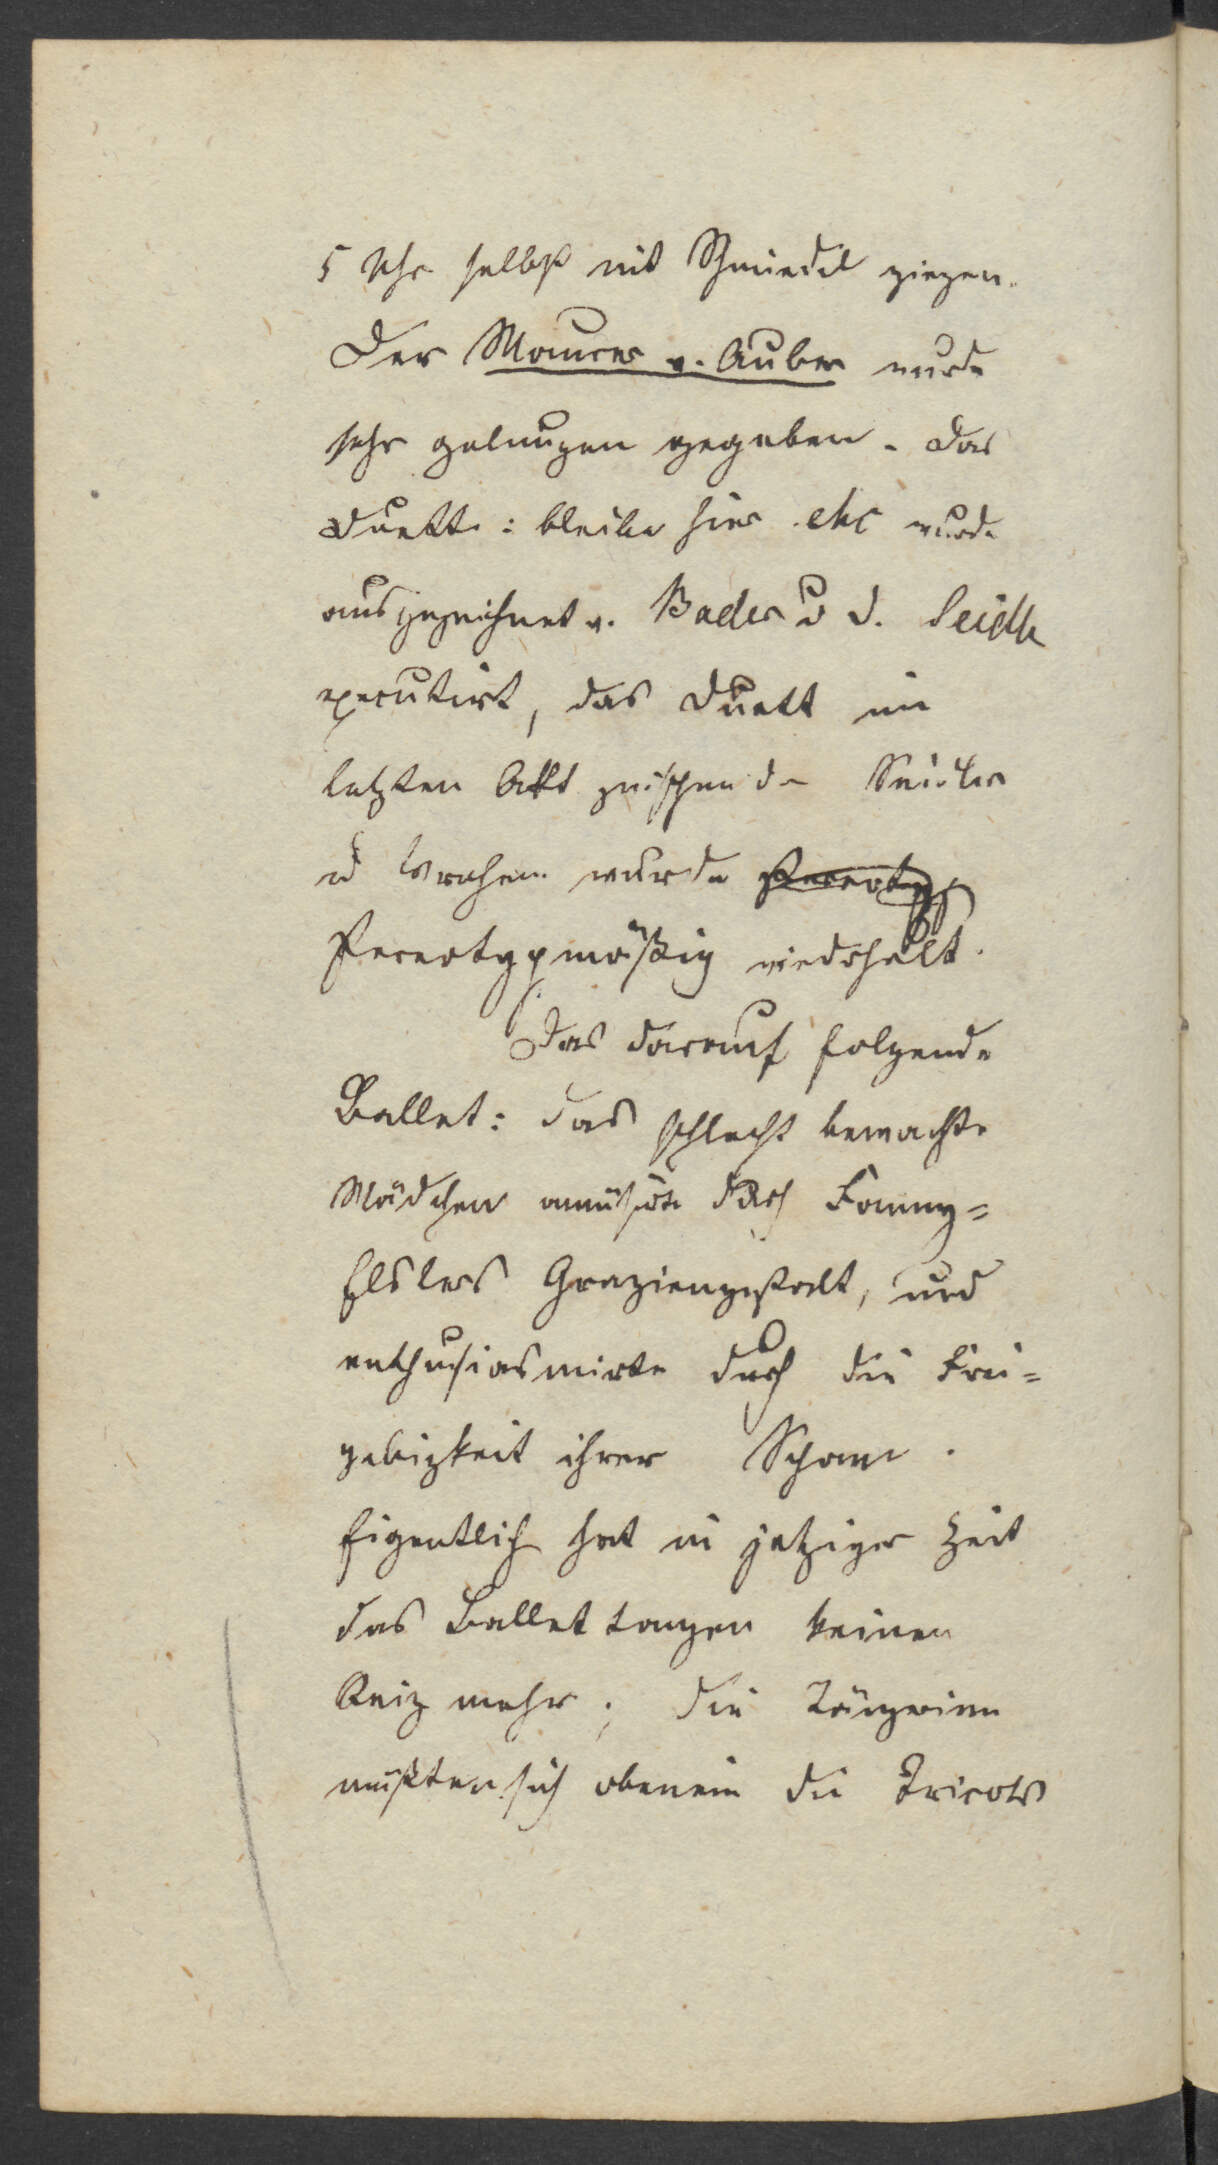 5 Uhr selbst mit Schmiedel gingen.
Der Maurer v. Auber wurde
sehr gelungen gegeben. Das
Duett: bleibe hier etc wurde
ausgezeichnet v. Bader u d. Seidler
executirt, das Duett im
letzten Akt zwischen d. Seidler
u Wrohem wurde stereotyp
stereotypmäßig wiederholt.
Das darauf folgende
Ballet: das schlecht bewachte
Mädchen amüsirte durch Fanny=
Elslers Graziengestalt, und
enthusiasmirte durch die Frei=
gebigkeit ihrer Scham.
Eigentlich hat in jetziger Zeit
das Ballettanzen keinen
Reiz mehr; die Tänzerinn
müßten sich obenein die Tricots